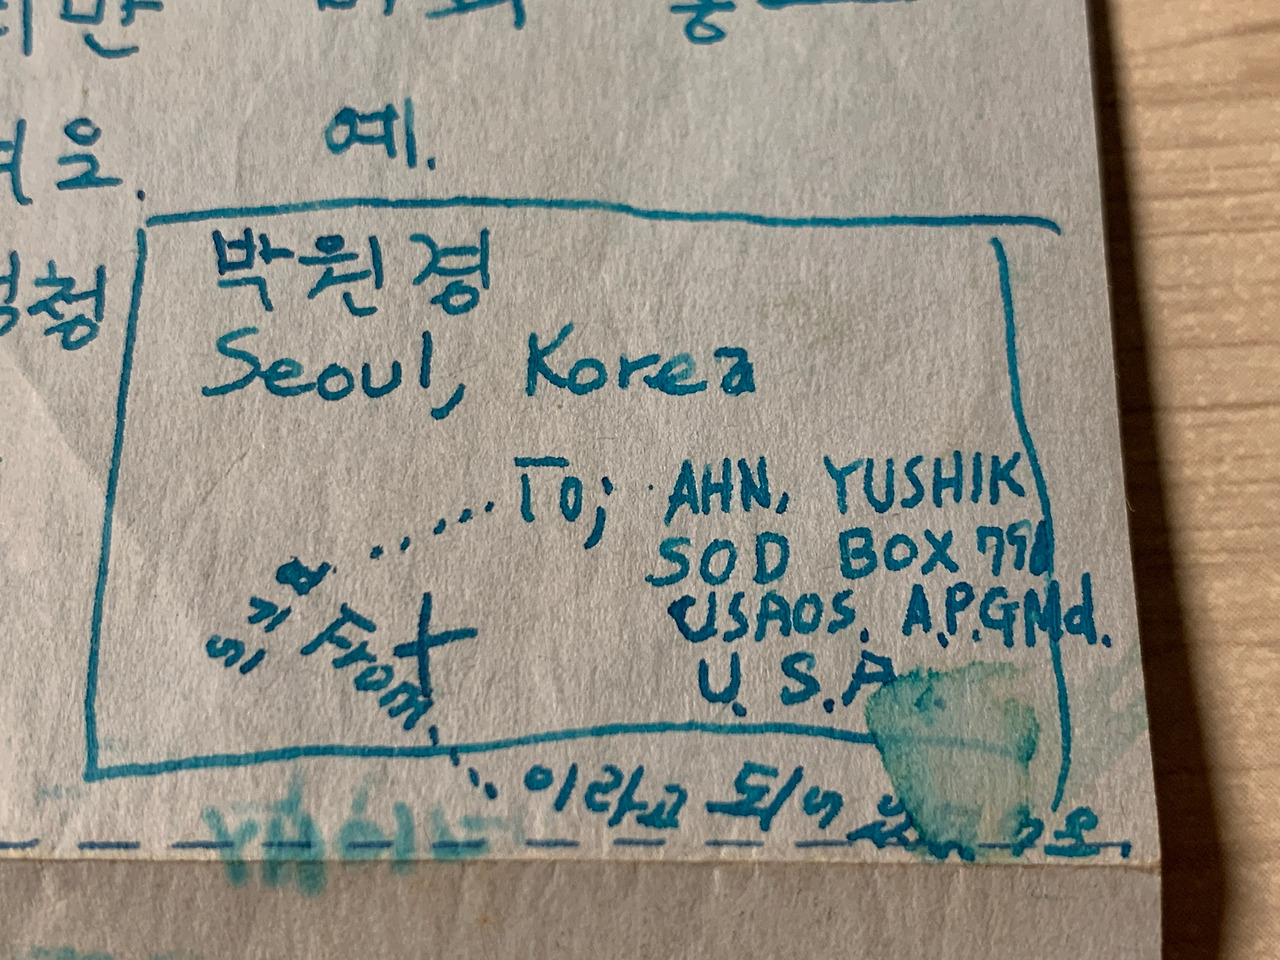 만
예.
오.
청
박원경
Seoul, Korea
To; AHN, YUSHIK
SOD BOX 791
USAOS. A.P.G Md.
U. S. A
From
이라고 되어